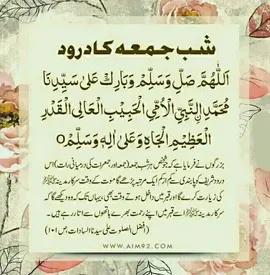 شب جمعہ کا درود
اَللّٰهُمَّ صَلِّ وَسَلِّمْ وَبَارِكْ عَلٰی سَیِّدِنَا
مُحَمَّدِ النَّبِیِّ الْاُمِّیِّ الْحَبِیْبِ الْعَالِی الْقَدْرِ
الْعَظِیْمِ الْجَاهِ وَعَلٰی اٰلِهٖ وَسَلِّمْ
بزرگوں نے فرمایا ہے کہ جو شخص ہر شب جمعہ (جمعہ اور جمعرات کی درمیانی رات) اس
درود شریف کو پابندی سے کم از کم ایک مرتبہ پڑھے گا موت کے وقت سرکار مدینہ ﷺ
کی زیارت کرے گا اور قبر میں داخل ہوتے وقت بھی، یہاں تک کہ وہ دیکھے گا کہ
سرکار مدینہ ﷺ اسے قبر میں اپنے رحمت بھرے ہاتھوں سے اتار رہے ہیں۔
(افضل الصلوات علی سید السادات، ص ۱۵۱)
WWW.AIM92.COM